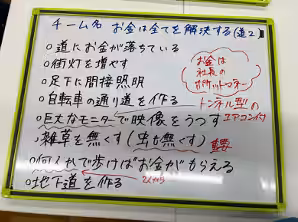 チーム名 お金は全てを解決する(道2)
○道にお金が落ちている
○街灯を増やす
○足下に間接照明
お金は
社長の
ポケットマネー
○自転車の通り道を作る
トンネル型の
エアコン付
○巨大なモニターで映像をうつす
○雑草を無くす(虫も無くす)
○何kmで歩けばお金がもらえる
○地下道を作る